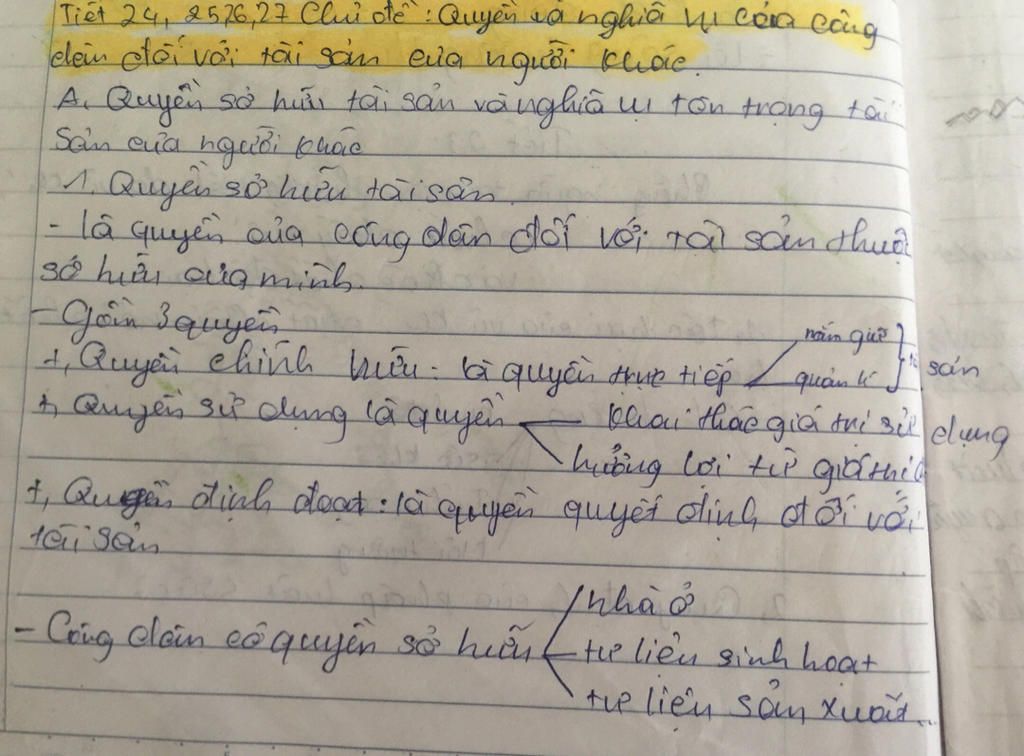 Tiết 24, 25,26,27 Chủ đề: Quyền và nghĩa vụ của công
dân đối với tài sản của người khác.
A, Quyền sở hữu tài sản và nghĩa vụ tôn trọng tài
sản của người khác
1. Quyền sở hữu tài sản.
- là quyền của công dân đối với tài sản thuộc
sở hữu của mình.
- Gồm 3 quyền
+, Quyền chiếm hữu: là quyền trực tiếp nắm giữ quản lí tài sản
+, Quyền sử dụng là quyền khai thác giá trị sử dụng
hưởng lợi từ giá trị
+, Quyền định đoạt: là quyền quyết định đối với
tài sản
- Công dân có quyền sở hữu nhà ở
tư liệu sinh hoạt
tư liệu sản xuất...